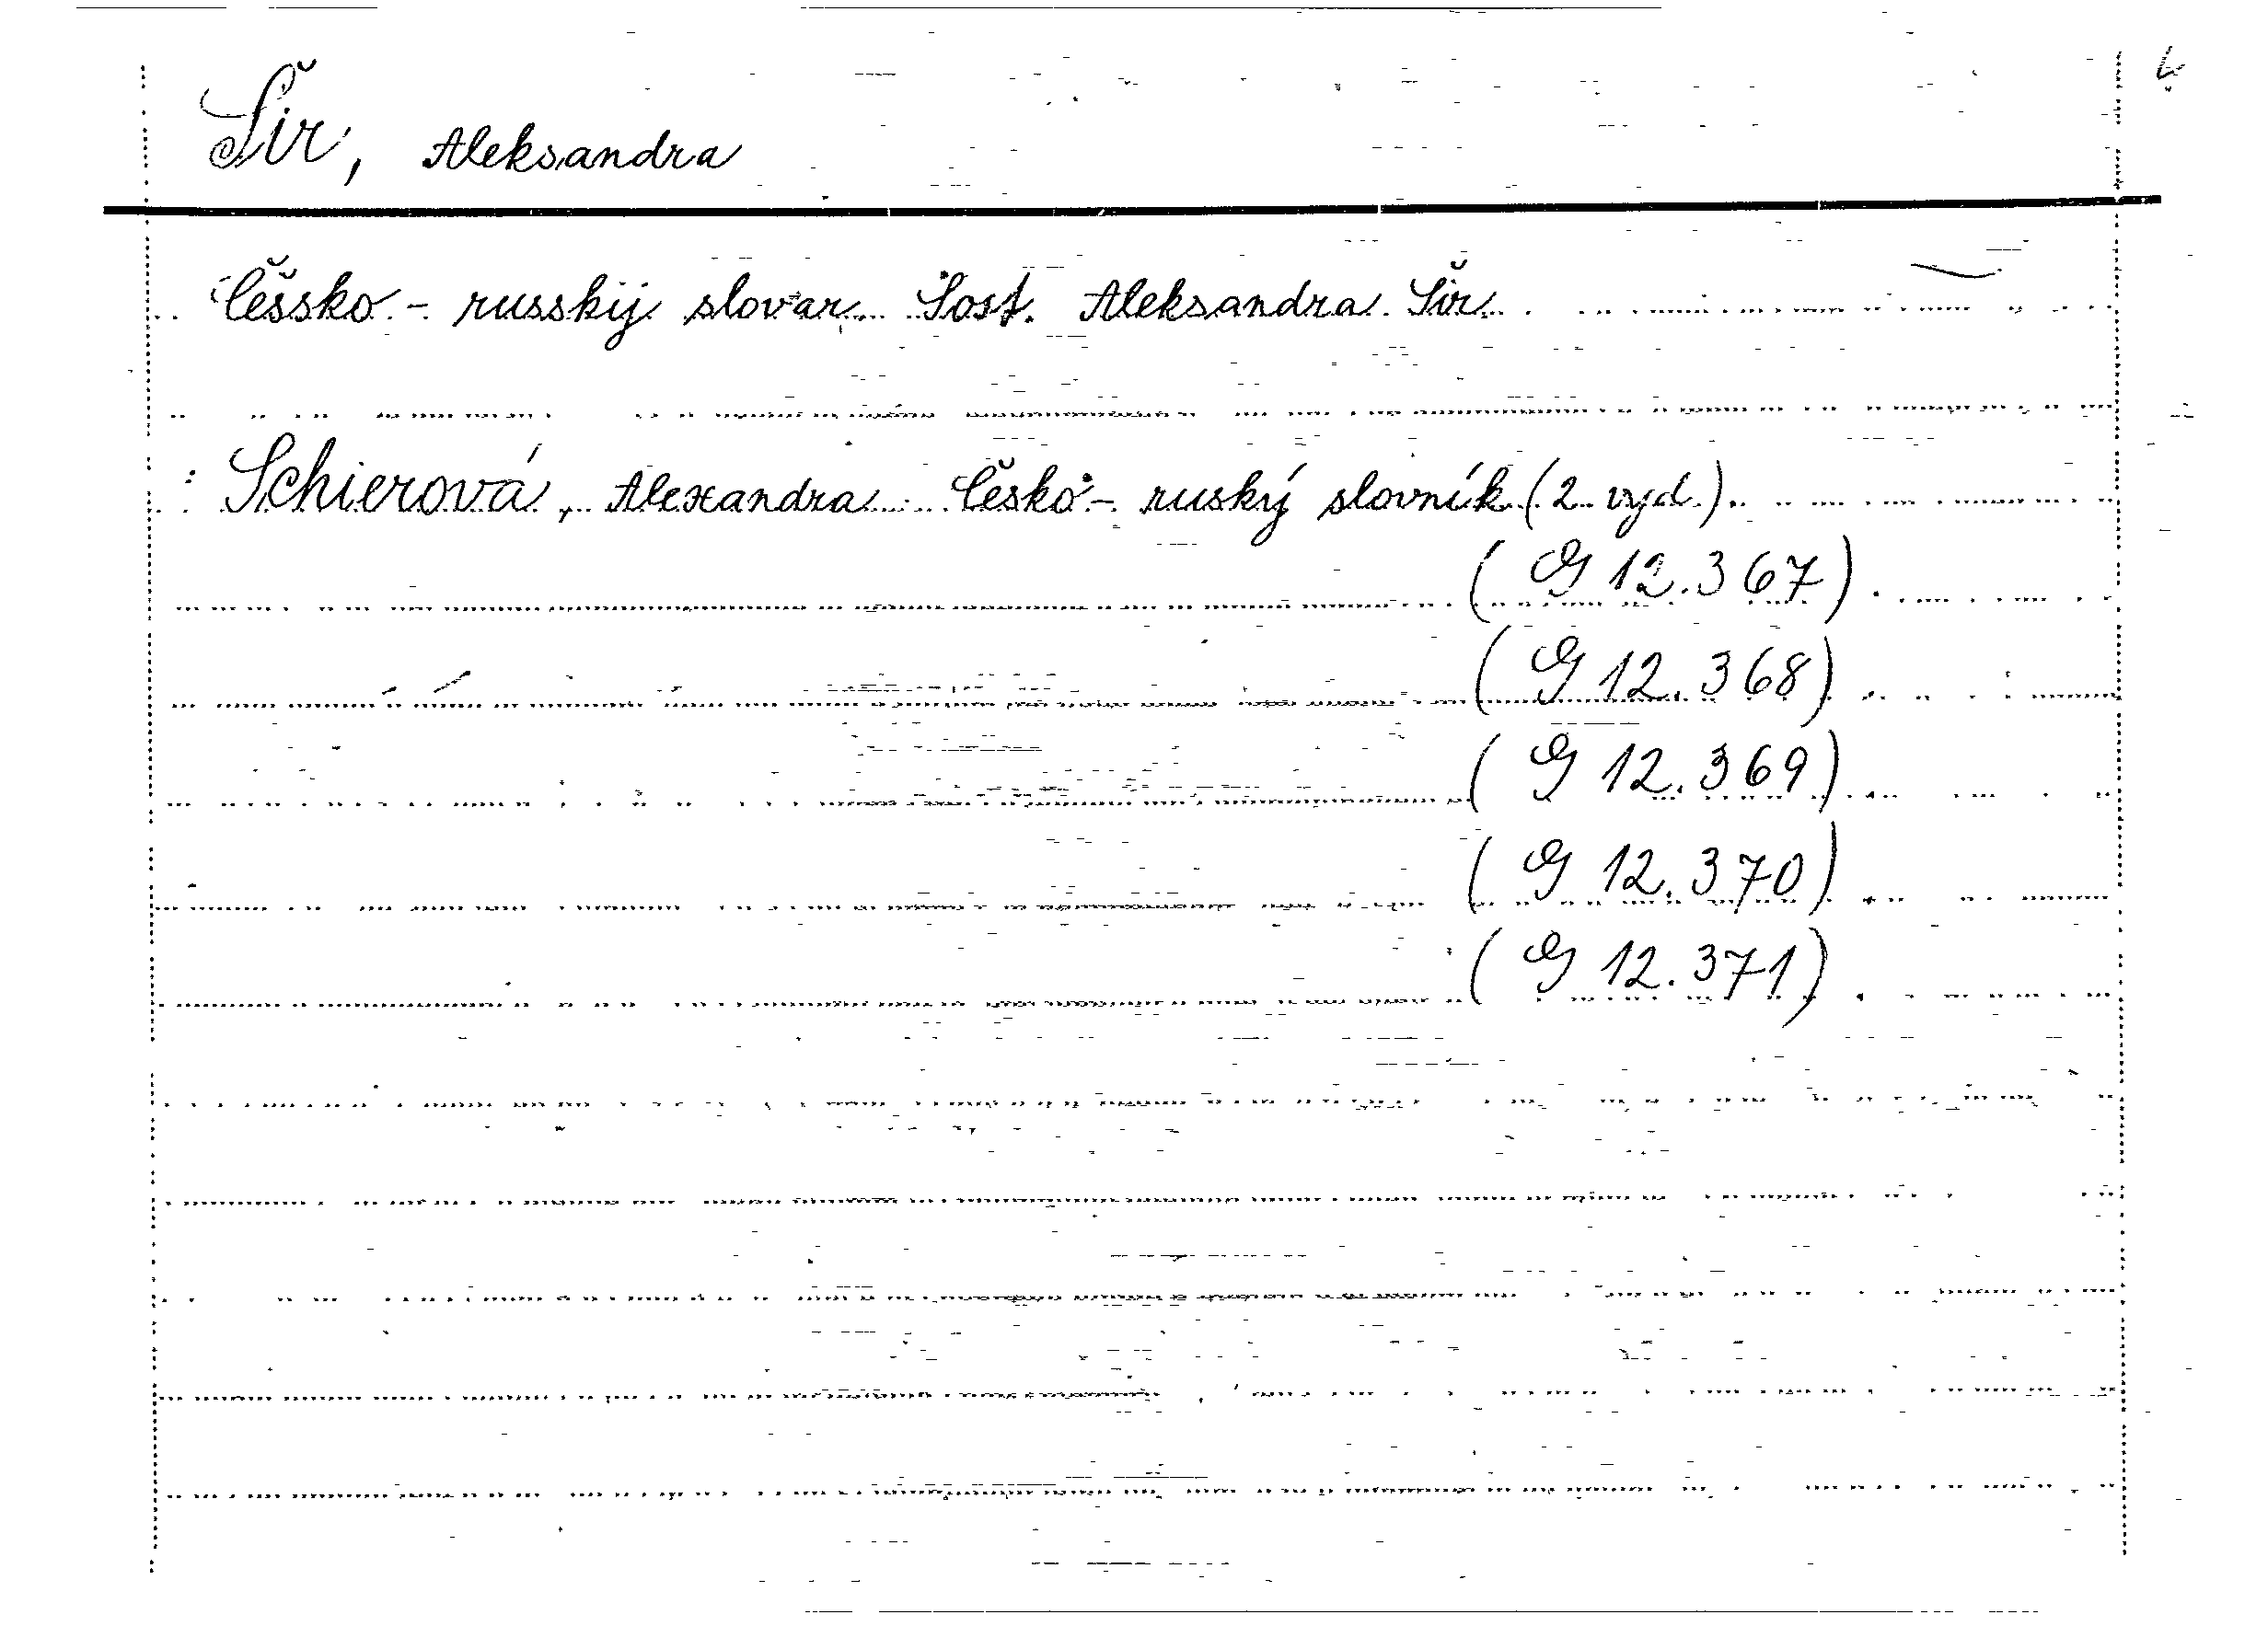 Šir, Aleksandra
Češsko - russkij slovar. Sost. Aleksandra Šir.
Schierová, Alexandra: Česko - ruský slovník (2. vyd.).
(G 12.367)
(G 12.368)
(G 12.369)
(G 12.370)
(G 12.371)